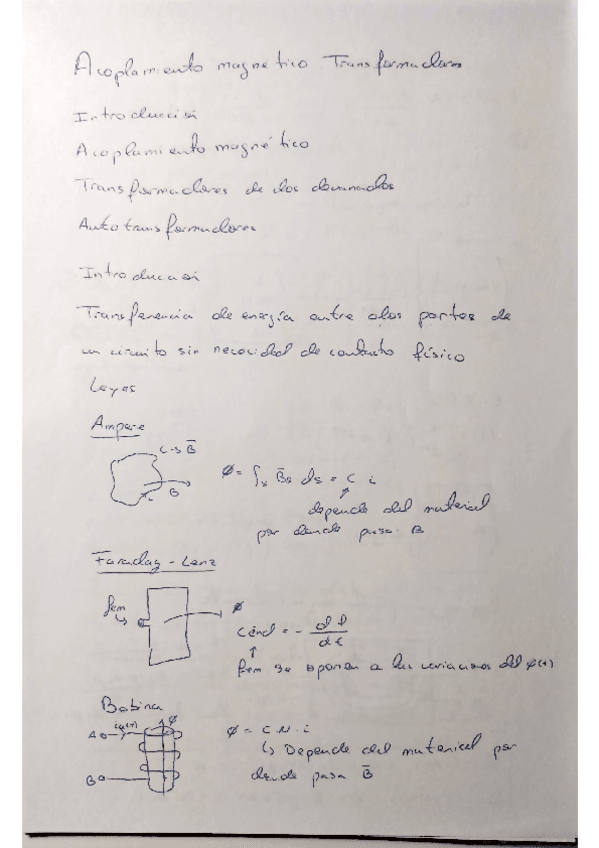 Acoplamiento magnético Transformadores
Introducción
Acoplamiento magnético
Transformadores de dos devanados
Autotransformadores
Introducción
Transferencia de energía entre dos partes de
un circuito sin necocidad de contacto físico
Leyes
Ampere
i -> B̅
B
i
φ = ∫s B̅s ds = C i
depende del material
por donde pasa B
Faraday - Lenz
fem
φ
= - dφ/dt
fem se oponen a las variaciones del φ(t)
Bobina
φ
A
B
φ = C N · i
↳ Depende del material por
donde pasa B̅